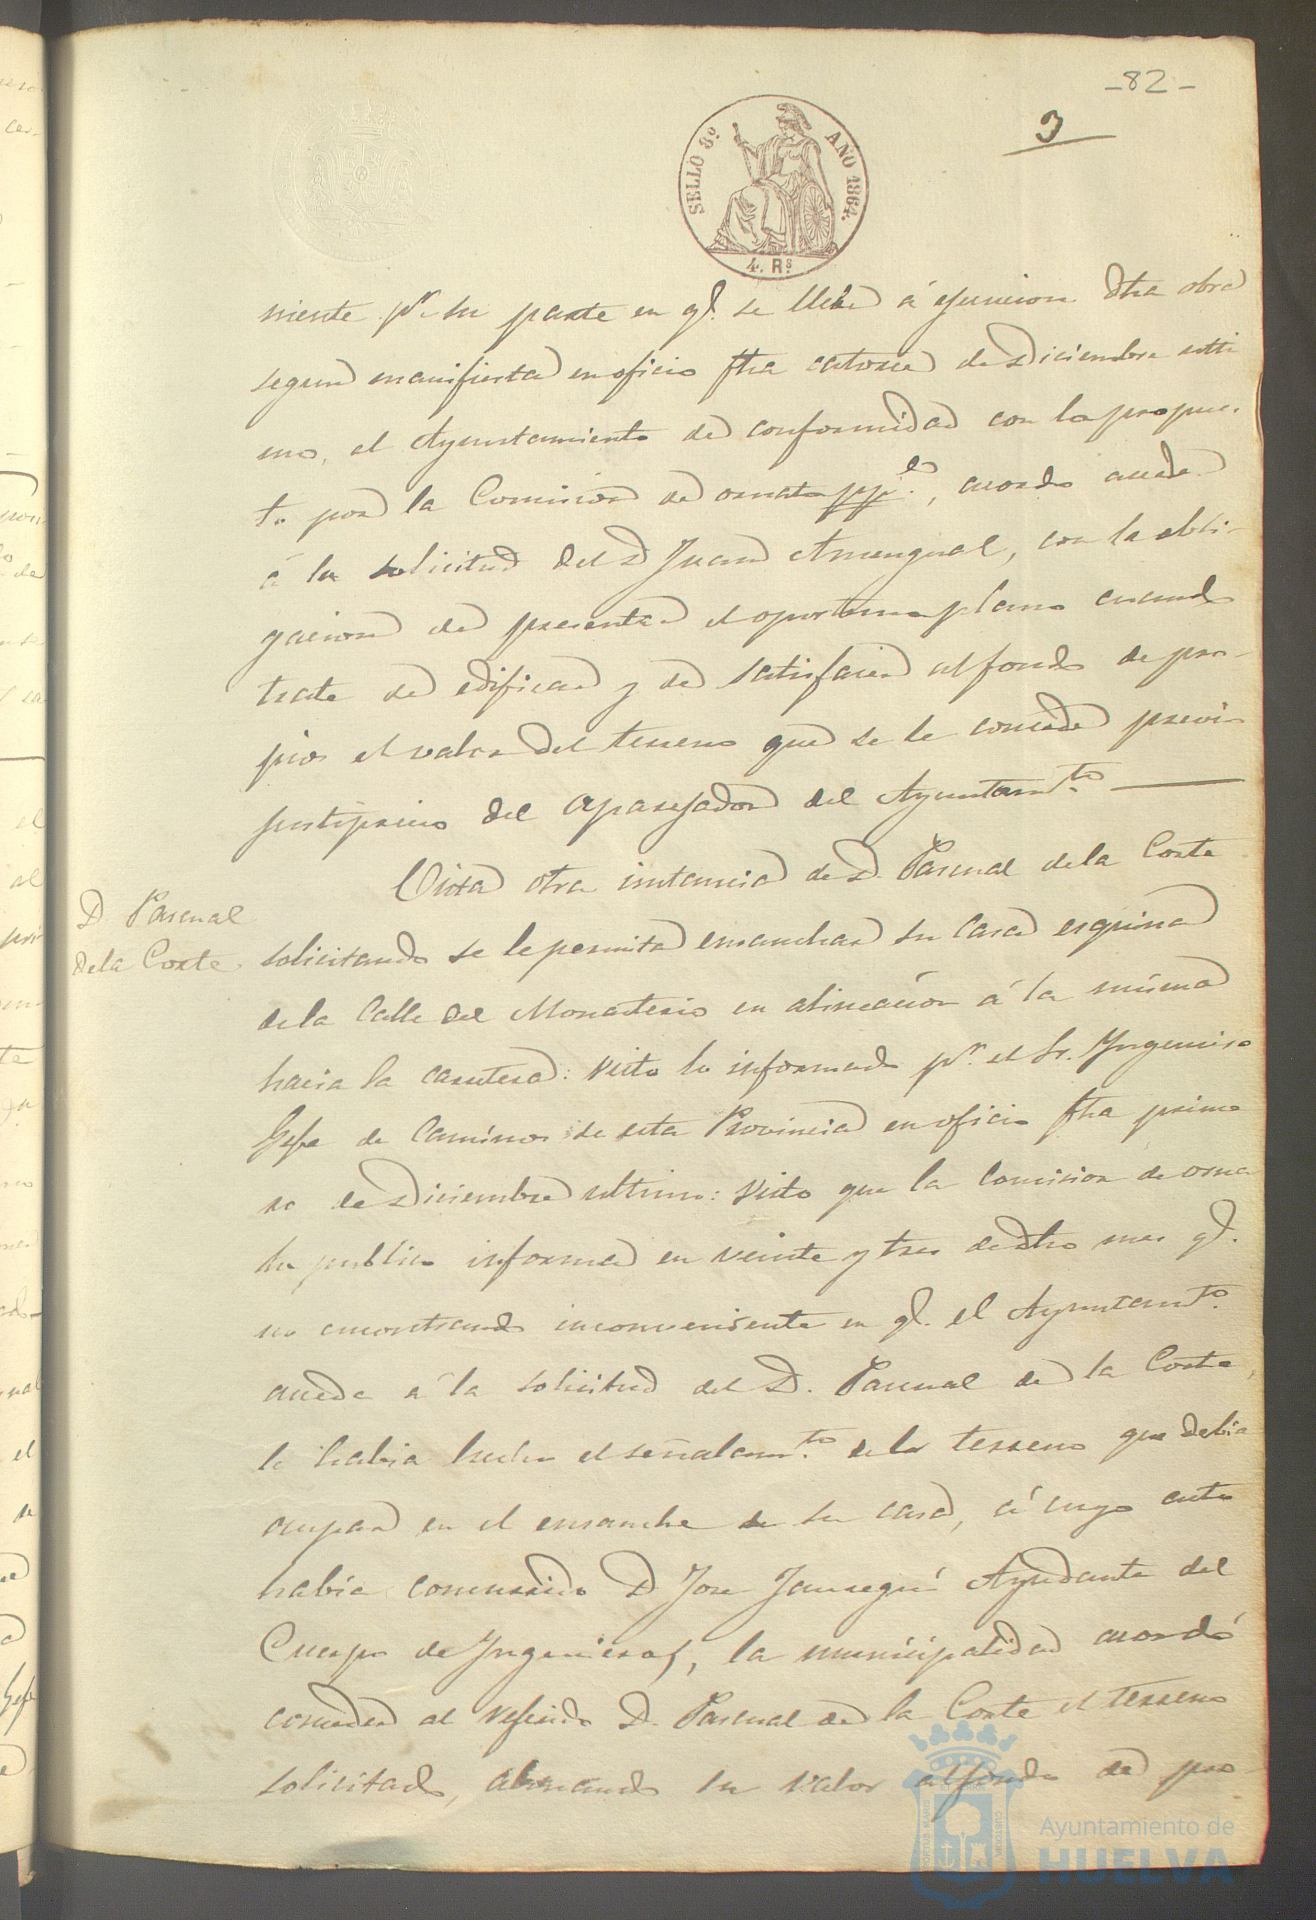 -82-
3
SELLO 8º AÑO 1864.
4. Rs
niente pr. su parte en q. se lleve á ejecucion dha obra
segun manifiesta en oficio fha catorce de Diciembre ulti
mo, el Ayuntamiento de conformidad con lo propues
to por la Comision de ornato ppco., acordo acceder
á la solicitud del D Juan Amengual, con la obli-
gacion de presentar el oportuno plano cuando
trate de edificar y de satisfacer al fondo de pro-
pios el valor del terreno que se le concede previo
justiprecio del aparejador del Ayuntamto.
Vista otra instancia de D. Pascual de la Corte
D. Pascual
de la Corte.
solicitando se le permita ensanchar su casa esquina
de la Calle del Monasterio en alineacion á la misma
hacia la carretera: visto lo informado pr. el Sr. Yngeniero
Gefe de Caminos de esta Provincia en oficio fha prime
ro de Diciembre ultimo: visto que la Comision de orna
to publico informa en veinte y tres de dho mes q.
no encontrando inconveniente en q. el Ayuntamto.
acceda á la solicitud del D. Pascual de la Corte,
le habia hecho el señalamto. de la terreno que debia
ocupar en el ensanche de su casa, á cuyo acto
habia concurrido D Jose Jauregui Ayudante del
Cuerpo de Yngenieros, la municipalidad acordó
conceder al referido D. Pascual de la Corte el terreno
solicitado, abonando su valor al fondo de pro-
Ayuntamiento de
HUELVA